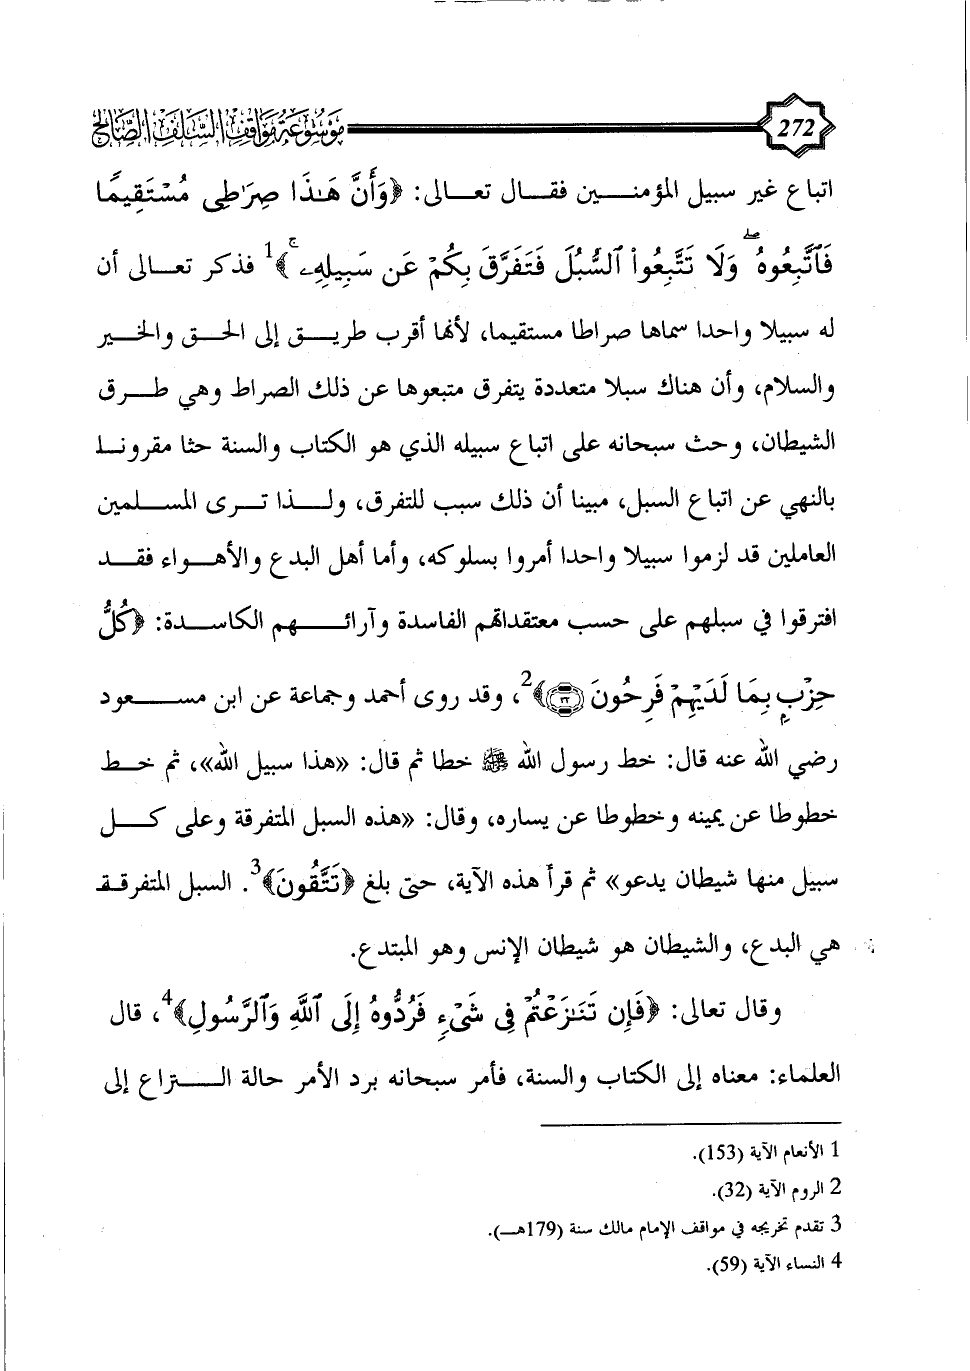 272 موسوعة مواقف السلف الصالح
اتباع غير سبيل المؤمنين فقال تعالى: ﴿وَأَنَّ هَـٰذَا صِرَٰطِى مُسْتَقِيمًا
فَٱتَّبِعُوهُ ۖ وَلَا تَتَّبِعُوا۟ ٱلسُّبُلَ فَتَفَرَّقَ بِكُمْ عَن سَبِيلِهِۦ ۚ﴾1 فذكر تعالى أن
له سبيلا واحدا سماها صراطا مستقيما، لأنها أقرب طريق إلى الحق والخير
والسلام، وأن هناك سبلا متعددة يتفرق متبعوها عن ذلك الصراط وهي طرق
الشيطان، وحث سبحانه على اتباع سبيله الذي هو الكتاب والسنة حثا مقرونا
بالنهي عن اتباع السبل، مبينا أن ذلك سبب للتفرق، ولذا ترى المسلمين
العاملين قد لزموا سبيلا واحدا أمروا بسلوكه، وأما أهل البدع والأهواء فقد
افترقوا في سبلهم على حسب معتقداتهم الفاسدة وآرائهم الكاسدة: ﴿كُلُّ
حِزْبٍۭ بِمَا لَدَيْهِمْ فَرِحُونَ ﴿٣٢﴾﴾2، وقد روى أحمد وجماعة عن ابن مسعود
رضي الله عنه قال: خط رسول الله ﷺ خطا ثم قال: «هذا سبيل الله»، ثم خط
خطوطا عن يمينه وخطوطا عن يساره، وقال: «هذه السبل المتفرقة وعلى كل
سبيل منها شيطان يدعو» ثم قرأ هذه الآية، حتى بلغ ﴿تَتَّقُونَ﴾3. السبل المتفرقة
هي البدع، والشيطان هو شيطان الإنس وهو المبتدع.
وقال تعالى: ﴿فَإِن تَنَـٰزَعْتُمْ فِى شَىْءٍ فَرُدُّوهُ إِلَى ٱللَّهِ وَٱلرَّسُولِ﴾4، قال
العلماء: معناه إلى الكتاب والسنة، فأمر سبحانه برد الأمر حالة النزاع إلى
1 الأنعام الآية (153).
2 الروم الآية (32).
3 تقدم تخريجه في مواقف الإمام مالك سنة (179هـ).
4 النساء الآية (59).